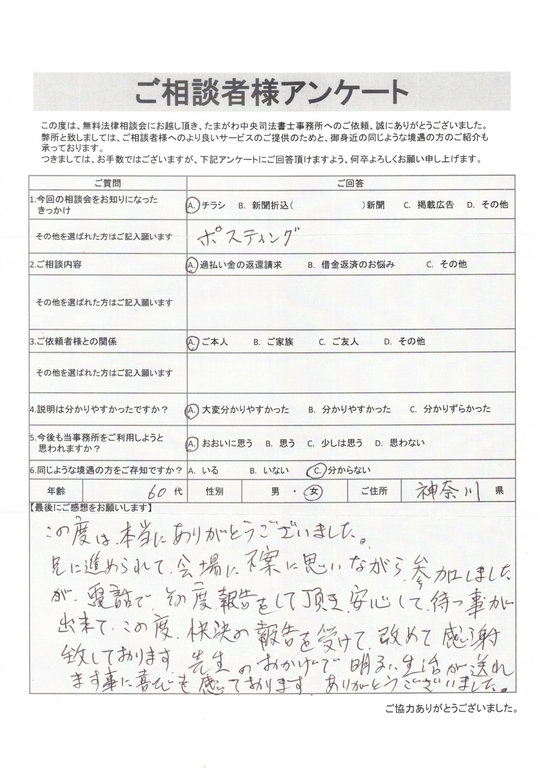 ご相談者様アンケート
この度は、無料法律相談会にお越し頂き、たまがわ中央司法書士事務所へのご依頼、誠にありがとうございました。
弊所と致しましては、ご相談者様へのより良いサービスのご提供のためと、御身近の同じような境遇の方のご紹介も
承っております。
つきましては、お手数ではございますが、下記アンケートにご回答頂けますよう、何卒よろしくお願い申し上げます。
ご質問 ご回答
1.今回の相談会をお知りになった
きっかけ
A. チラシ B. 新聞折込( )新聞 C. 掲載広告 D. その他
その他を選ばれた方はご記入願います ポスティング
2.ご相談内容 A. 過払い金の返還請求 B. 借金返済のお悩み C. その他
その他を選ばれた方はご記入願います
3.ご依頼者様との関係 A. ご本人 B. ご家族 C. ご友人 D. その他
その他を選ばれた方はご記入願います
4.説明は分かりやすかったですか? A. 大変分かりやすかった B. 分かりやすかった C. 分かりずらかった
5.今後も当事務所をご利用しようと
思われますか?
A. おおいに思う B. 思う C. 少しは思う D. 思わない
6.同じような境遇の方をご存知ですか? A. いる B. いない C. 分からない
年齢 60 代 性別 男 ・ 女 ご住所 神奈川 県
【最後にご感想をお願いします】
この度は、本当にありがとうございました。
兄に進められて、会場に不案に思いながら、参加しました
が、電話で、初度報告をして頂き、安心して、待つ事が
出来て、この度、快決の報告を受けて、改めて感謝
致しております。先生のおかげで明るい生活が送れ
ます事に喜びを感じております。ありがとうございました。
ご協力ありがとうございました。